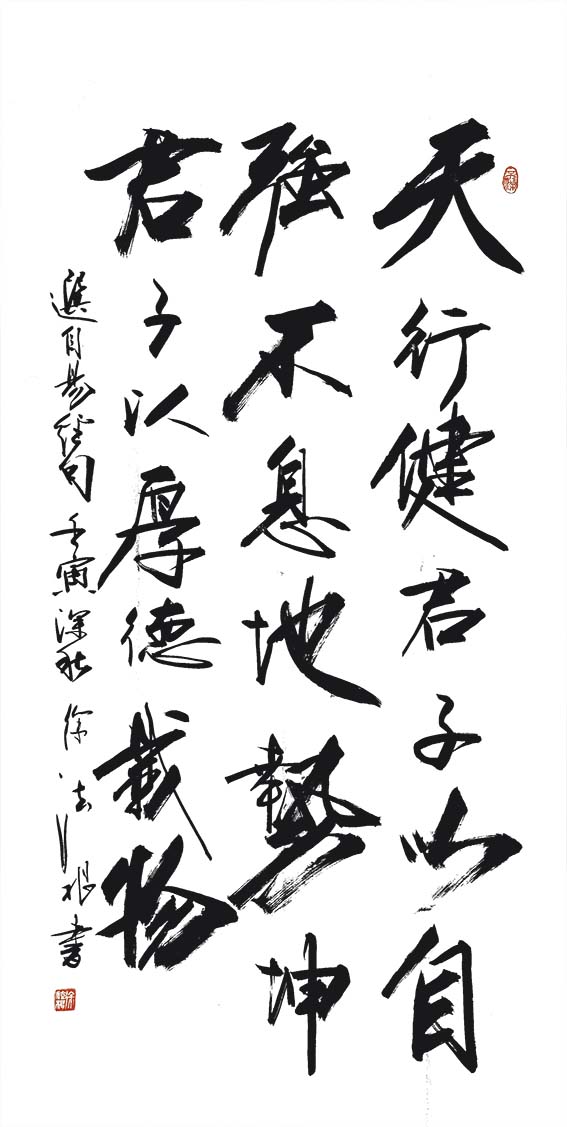 天行健君子以自
强不息地勢坤
君子以厚德載物
選自易經句 壬寅深秋 徐法根書